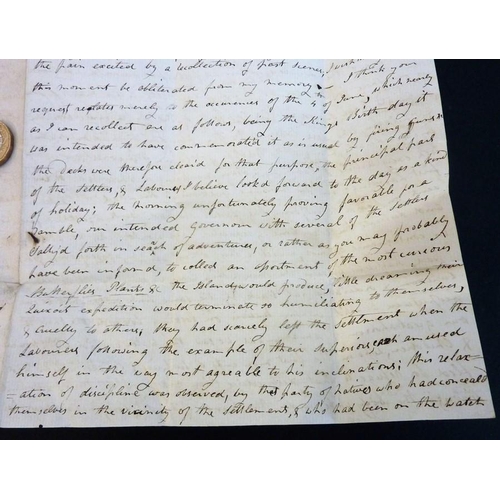 the pain excited by a recollection of past scenes, I wish
this moment be obliterated from my memory — I think your
request relates merely to the occurences of the 4 of June, which nearly
as I can recollect are as follows, being the Kings Birth day it
was intended to have commemorated it as is usual by firing guns &
the decks were therefore cleard for that purpose, the principal part
of the settlers, & Labourers, I believe look'd forward to the day as a kind
of holiday; the morning unfortunately proving favorable for a
ramble, our intended Governor with several of the settlers
sallyd forth in seach of adventures, or rather as you may probably
have been informd, to collect an assortment of the most curious
Butterflies Plants &c the Island would produce, little dreaming their
Quixoit expedition would terminate so humiliating to themselves,
& cruelly to others; they had scarcely left the settlement when the
Labourers following the example of their superiors, each amused
himself in the way most agreable to his inclinations; this relax-
-ation of discipline was observed, by that party of natives who had conceald
themselves in the vicinity of the settlements, & who had been on the watch